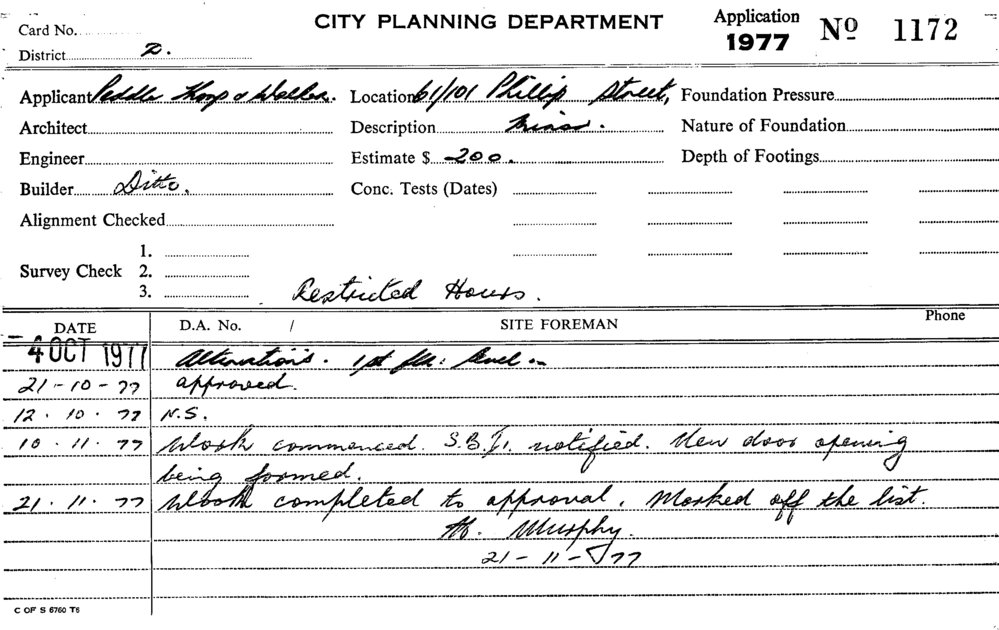 Card No.
CITY PLANNING DEPARTMENT
Application 1977 No 1172
District 2.
Applicant Peddle Thorp & Walker. Location 61/101 Phillip Street, Foundation Pressure
Architect Description Minor. Nature of Foundation
Engineer Estimate $ 200. Depth of Footings
Builder Ditto. Conc. Tests (Dates)
Alignment Checked
1.
Survey Check 2.
3.
Restricted Hours.
DATE D.A. No. / SITE FOREMAN Phone
- 4 OCT 1977 Alterations. 1st flr. level
21-10-77 approved.
12.10.77 N.S.
10.11.77 Work commenced. S.B.I. notified. New door opening
being formed.
21.11.77 Work completed to approval. Marked off the list.
M. Murphy.
21-11-77
C OF S 6760 T6